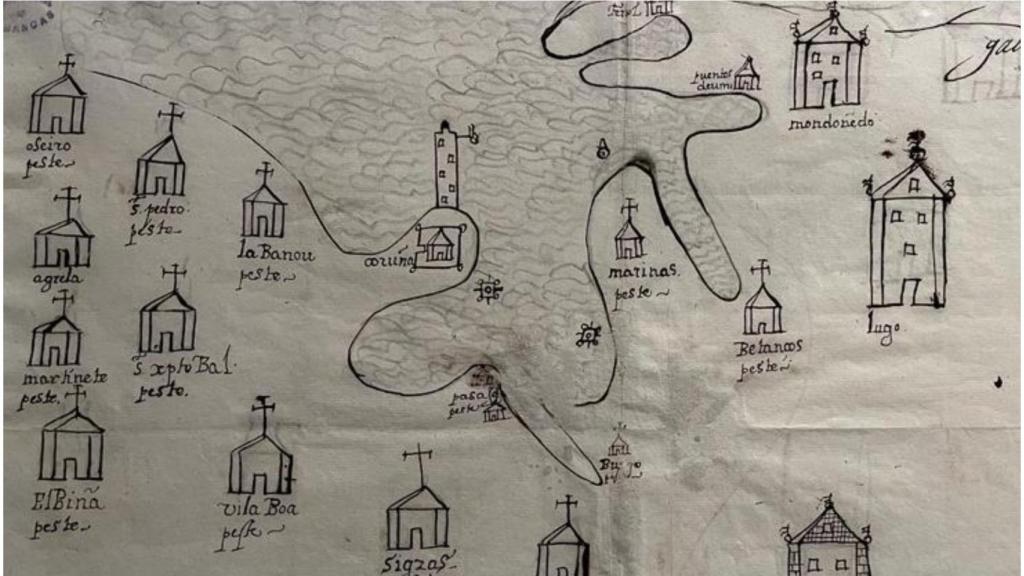 ferol
gali
puentes
deumi
mondoñedo
oseiro
peste
s. pedro.
peste
la Banou
peste
coruña
marinas.
peste
lugo
agrela
Betanços
peste
martinete
peste.
s. xpto Bal.
peste.
pasaje
peste
Burgo
ElBiña
peste
vila Boa
peste
sigras